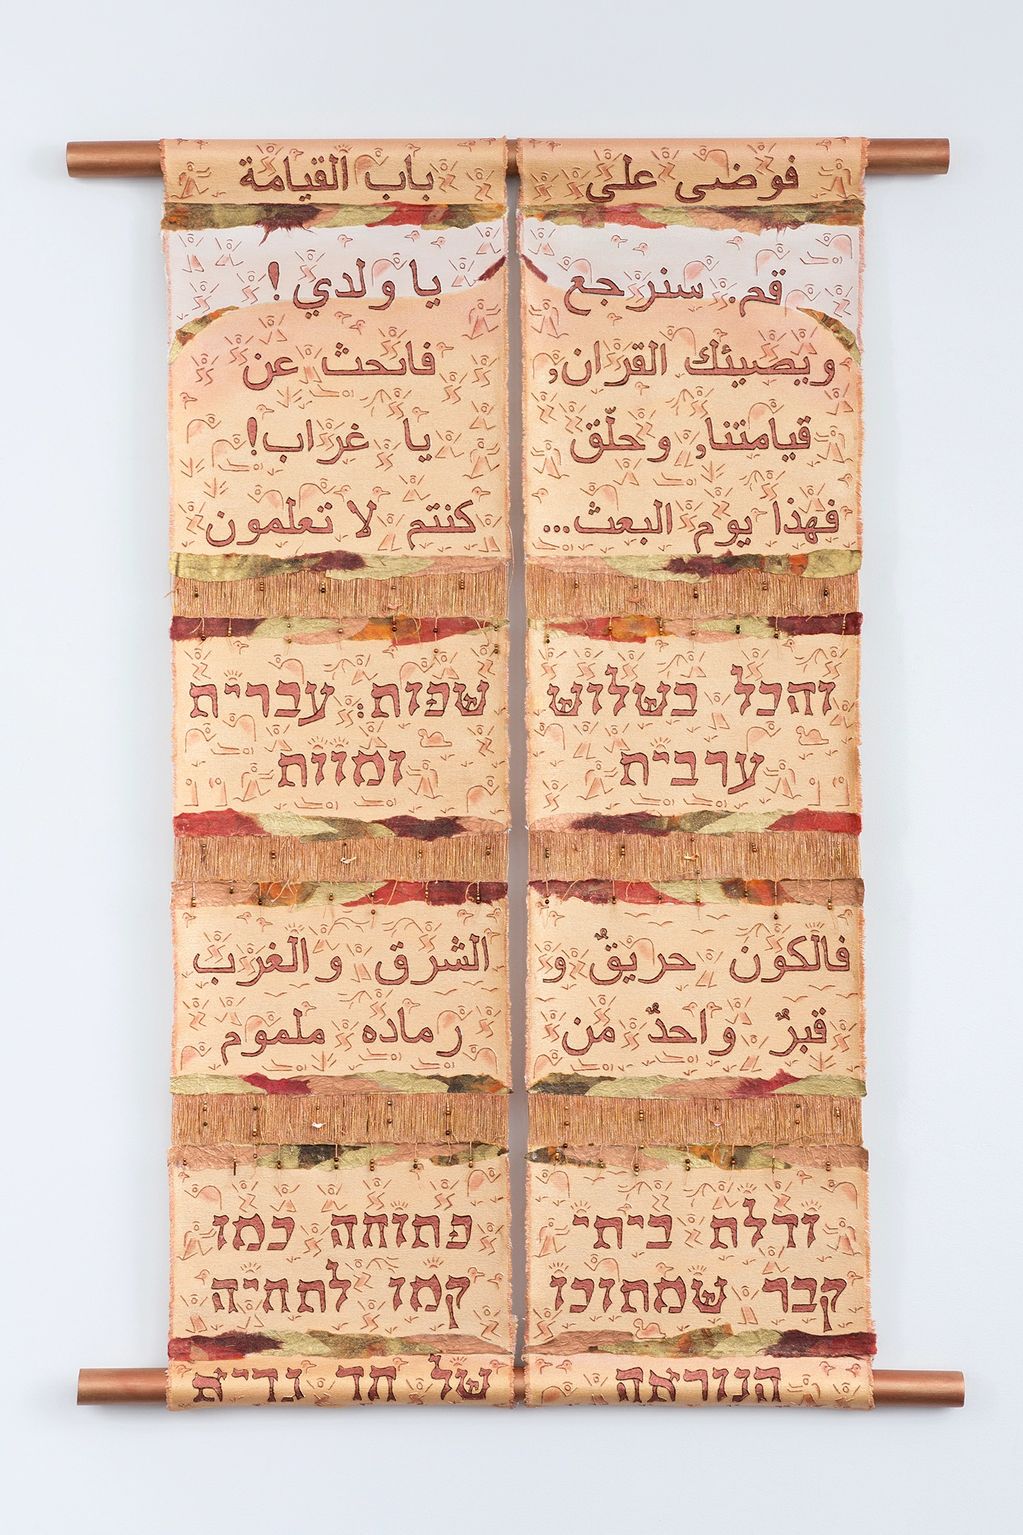 فوضى على باب القيامة
قم. سنرجع يا ولدي!
ويضيئك القران, فابحث عن
قيامتنا, وحلّق يا غراب!
فهذا يوم البعث... كنتم لا تعلمون
והכל בשלוש שפות: עברית
ערבית ומוות
فالكون حريقٌ و الشرق والغرب
قبرٌ واحدٌ من رماده ملموم
ודלת ביתי פתוחה כמו
קבר שמתוכו קמו לתחיה
הנוראה של חד גדיא